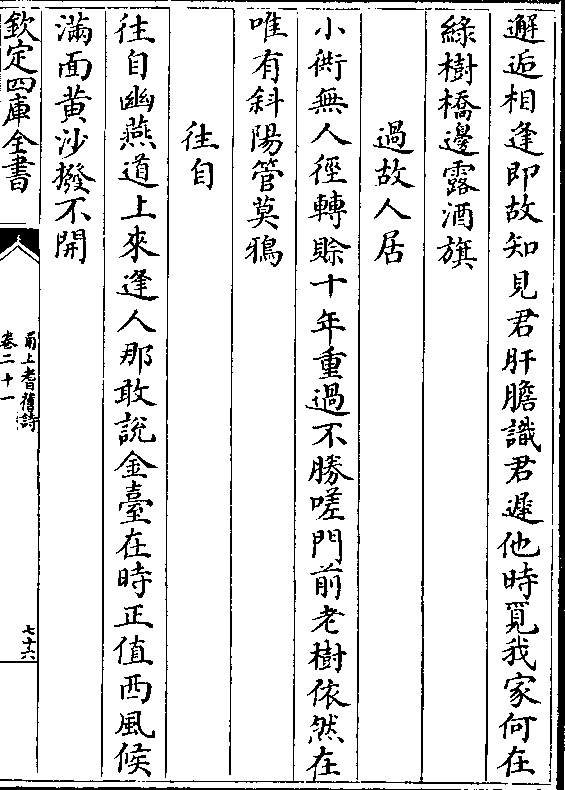 邂逅相逢即故知見君肝膽識君遲他時覓我家何在
綠樹橋邊露酒旗
過故人居
小衖無人徑轉賒十年重過不勝嗟門前老樹依然在
唯有斜陽管莫鴉
往自
往自幽燕道上來逢人那敢說金臺在時正值西風候
滿面黃沙撥不開
欽定四庫全書
甬上耆舊詩
卷二十一
七十六